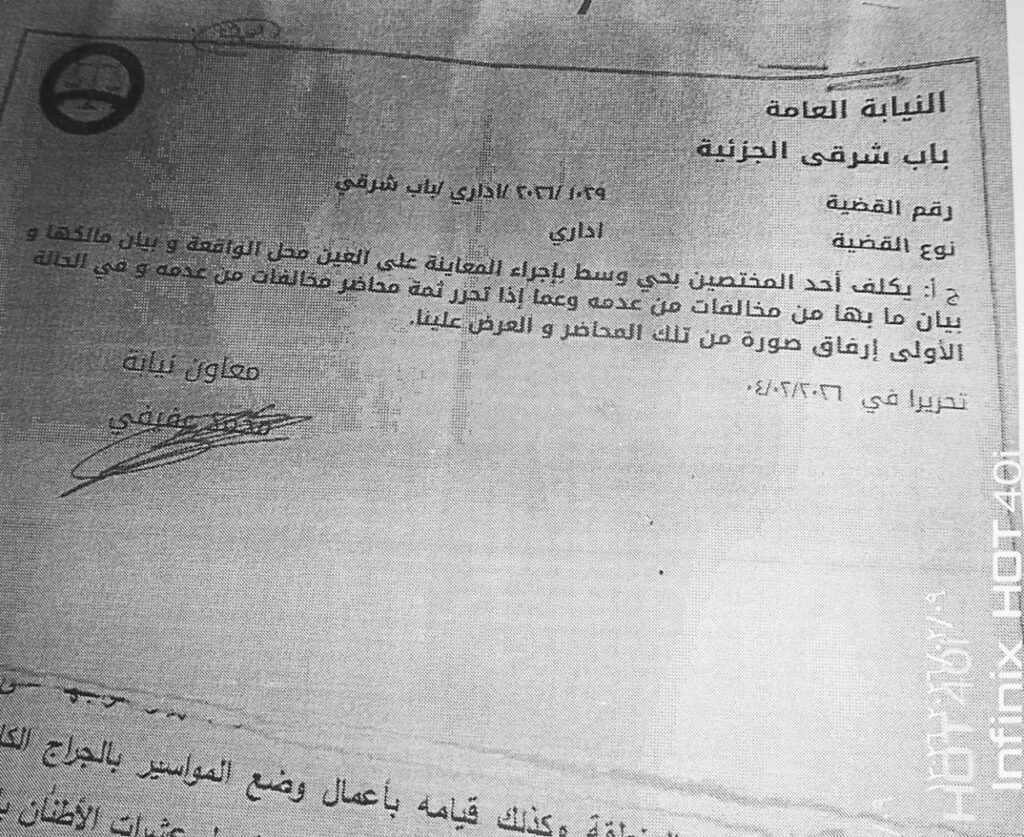 النيابة العامة
باب شرقى الجزئية
رقم القضية ١٠٢٩ /٢٠٢٦ /اداري /باب شرقي
نوع القضية اداري
ح أ: يكلف أحد المختصين بحي وسط بإجراء المعاينة على العين محل الواقعة و بيان مالكها و
بيان ما بها من مخالفات من عدمه وعما إذا تحرر ثمة محاضر مخالفات من عدمه و في الحالة
الأولى إرفاق صورة من تلك المحاضر و العرض علينا.
تحريرا في ٠٤/٠٢/٢٠٢٦
معاون نيابة
محمد عفيفي
وكذلك قيامه بأعمال وضع المواسير بالجراج
عشرات الأطنان
Infinix HOT 40i